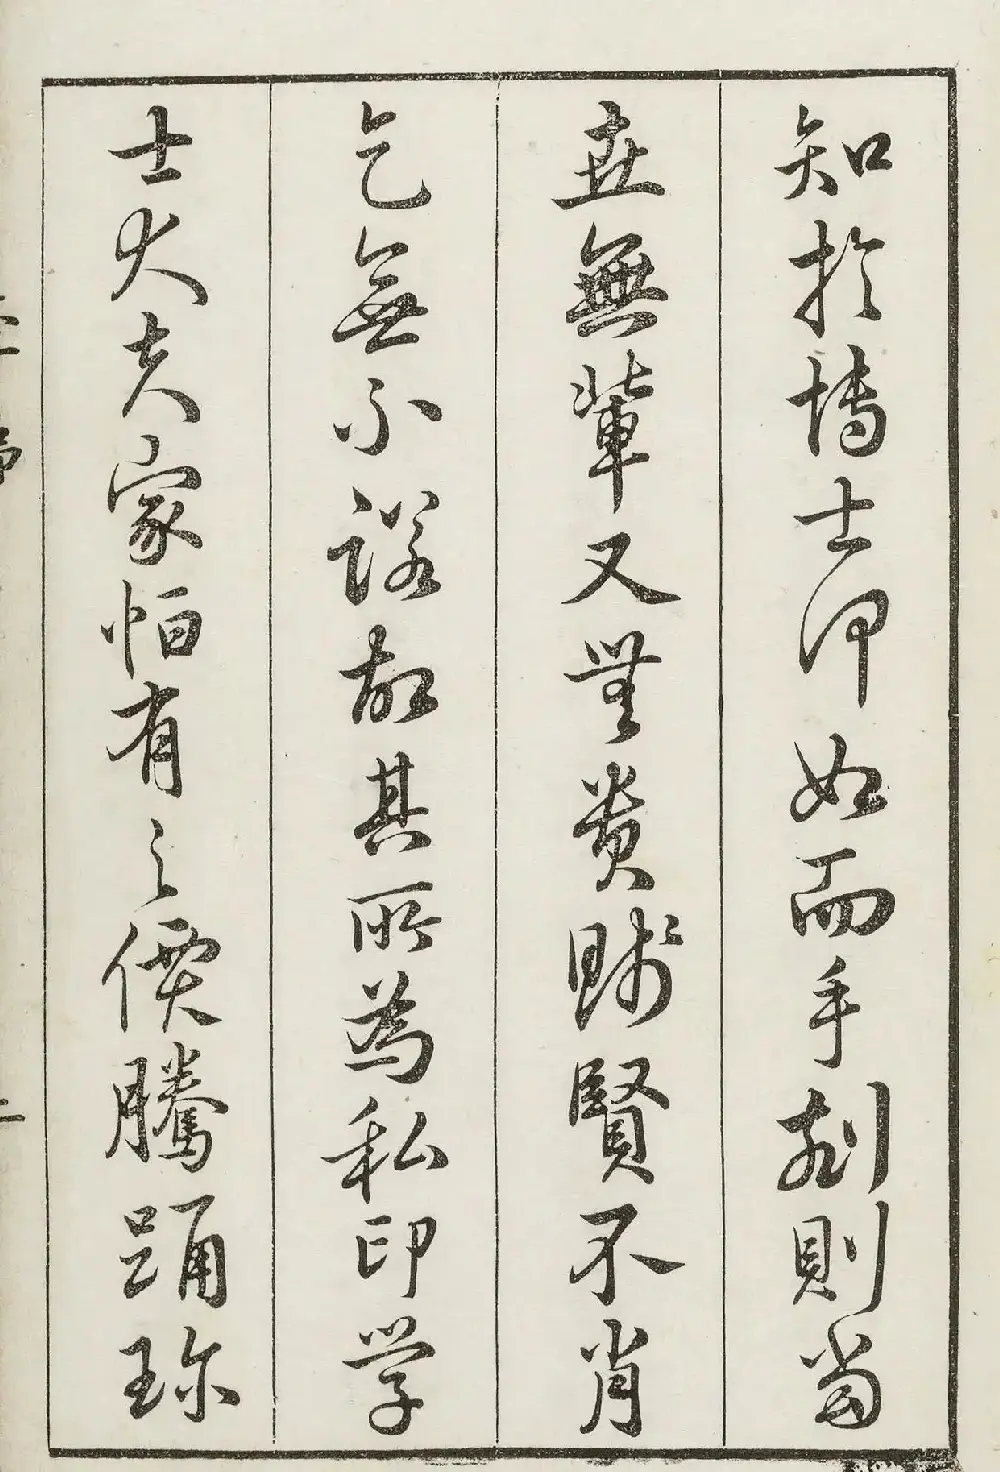 知於博士印如而手刻則當
世無輩又無貴賤賢不肖
乞無不諾故其所為私印学
士大夫家怕有之價騰踊珎